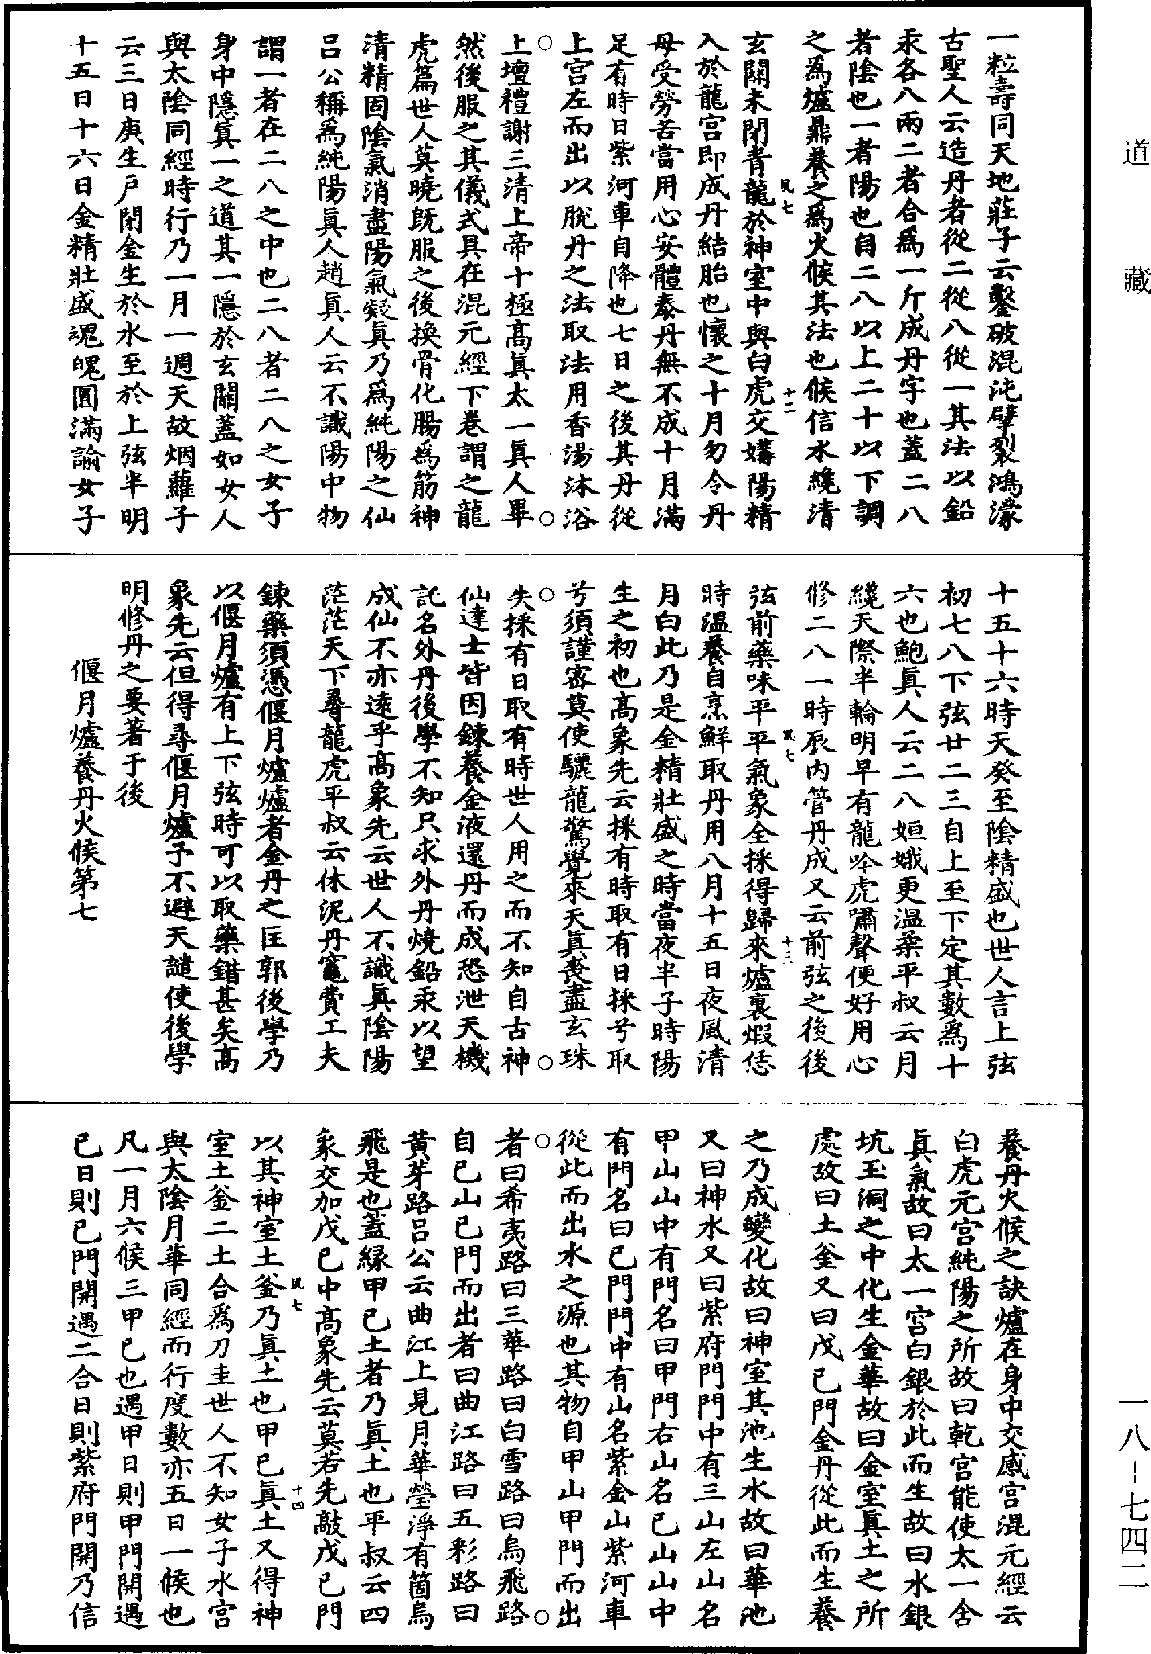 道藏
一八-七四二
一粒壽同天地莊子云鑿破混沌擘裂鴻濛
古聖人云造丹者從二從八從一其法以鉛
汞各八兩二者合爲一斤成丹字也蓋二八
者陰也一者陽也自二八以上二十以下調
之爲爐鼎養之爲火候其法也候信水纔清
玄關未閉青龍於神室中與白虎交媾陽精
風七
十二
入於龍宮即成丹結胎也懷之十月勿令丹
母受勞苦當用心安體泰丹無不成十月滿
足有時日紫河車自降也七日之後其丹從
上宮左而出以脫丹之法取法用香湯沐浴
上壇禮謝三清上帝十極高真太一真人畢
然後服之其儀式具在混元經下卷謂之龍
虎篇世人莫曉既服之後換骨化腸爲筋神
清精固陰氣消盡陽氣凝真乃爲純陽之仙
呂公稱爲純陽真人趙真人云不識陽中物
謂一者在二八之中也二八者二八之女子
身中隱真一之道其一隱於玄關蓋如女人
與太陰同經時行乃一月一週天故烟蘿子
云三日庚生戶閑金生於水至於上弦半明
十五日十六日金精壯盛魂魄圓滿諭女子
十五十六時天癸至陰精盛也世人言上弦
初七八下弦廿二三自上至下定其數爲十
六也鮑真人云二八姮娥更溫柔平叔云月
纔天際半輪明早有龍吟虎嘯聲便好用心
修二八一時辰內管丹成又云前弦之後後
弦前藥味平平氣象全採得歸來爐裏煆恁
風七
十三
時溫養自烹鮮取丹用八月十五日夜風清
月白此乃是金精壯盛之時當夜半子時陽
生之初也高象先云採有時取有日採兮取
兮須謹密莫使驪龍驚覺來天真喪盡玄珠
失採有日取有時世人用之而不知自古神
仙達士皆因鍊養金液還丹而成恐泄天機
託名外丹後學不知只求外丹燒鉛汞以望
成仙不亦遠乎高象先云世人不識真陰陽
茫茫天下尋龍虎平叔云休泥丹竈費工夫
鍊藥須憑偃月爐爐者金丹之匡郭後學乃
以偃月爐有上下弦時可以取藥錯甚矣高
象先云但得尋偃月爐予不避天譴使後學
明修丹之要著于後
偃月爐養丹火候第七
養丹火候之訣爐在身中交感宮混元經云
白虎元宮純陽之所故曰乾宮能使太一含
真氣故曰太一宮白銀於此而生故曰水銀
坑玉洞之中化生金華故曰金室真土之所
處故曰土釜又曰戊己門金丹從此而生養
之乃成變化故曰神室其池生水故曰華池
又曰神水又曰紫府門門中有三山左山名
甲山山中有門名曰甲門右山名己山山中
有門名曰己門門中有山名紫金山紫河車
從此而出水之源也其物自甲山甲門而出
者曰希夷路曰三華路曰白雪路曰烏飛路
自己山己門而出者曰曲江路曰五彩路曰
黃芽路呂公云曲江上見月華瑩淨有箇烏
飛是也蓋緣甲己土者乃真土也平叔云四
象交加戊己中高象先云莫若先敲戊己門
以其神室土釜乃真土也甲己真土又得神
風七
十四
室土釜二土合爲刀圭世人不知女子水宮
與太陰月華同經而行度數亦五日一候也
凡一月六候三甲己也遇甲日則甲門開遇
己日則己門開遇二合日則紫府門開乃信